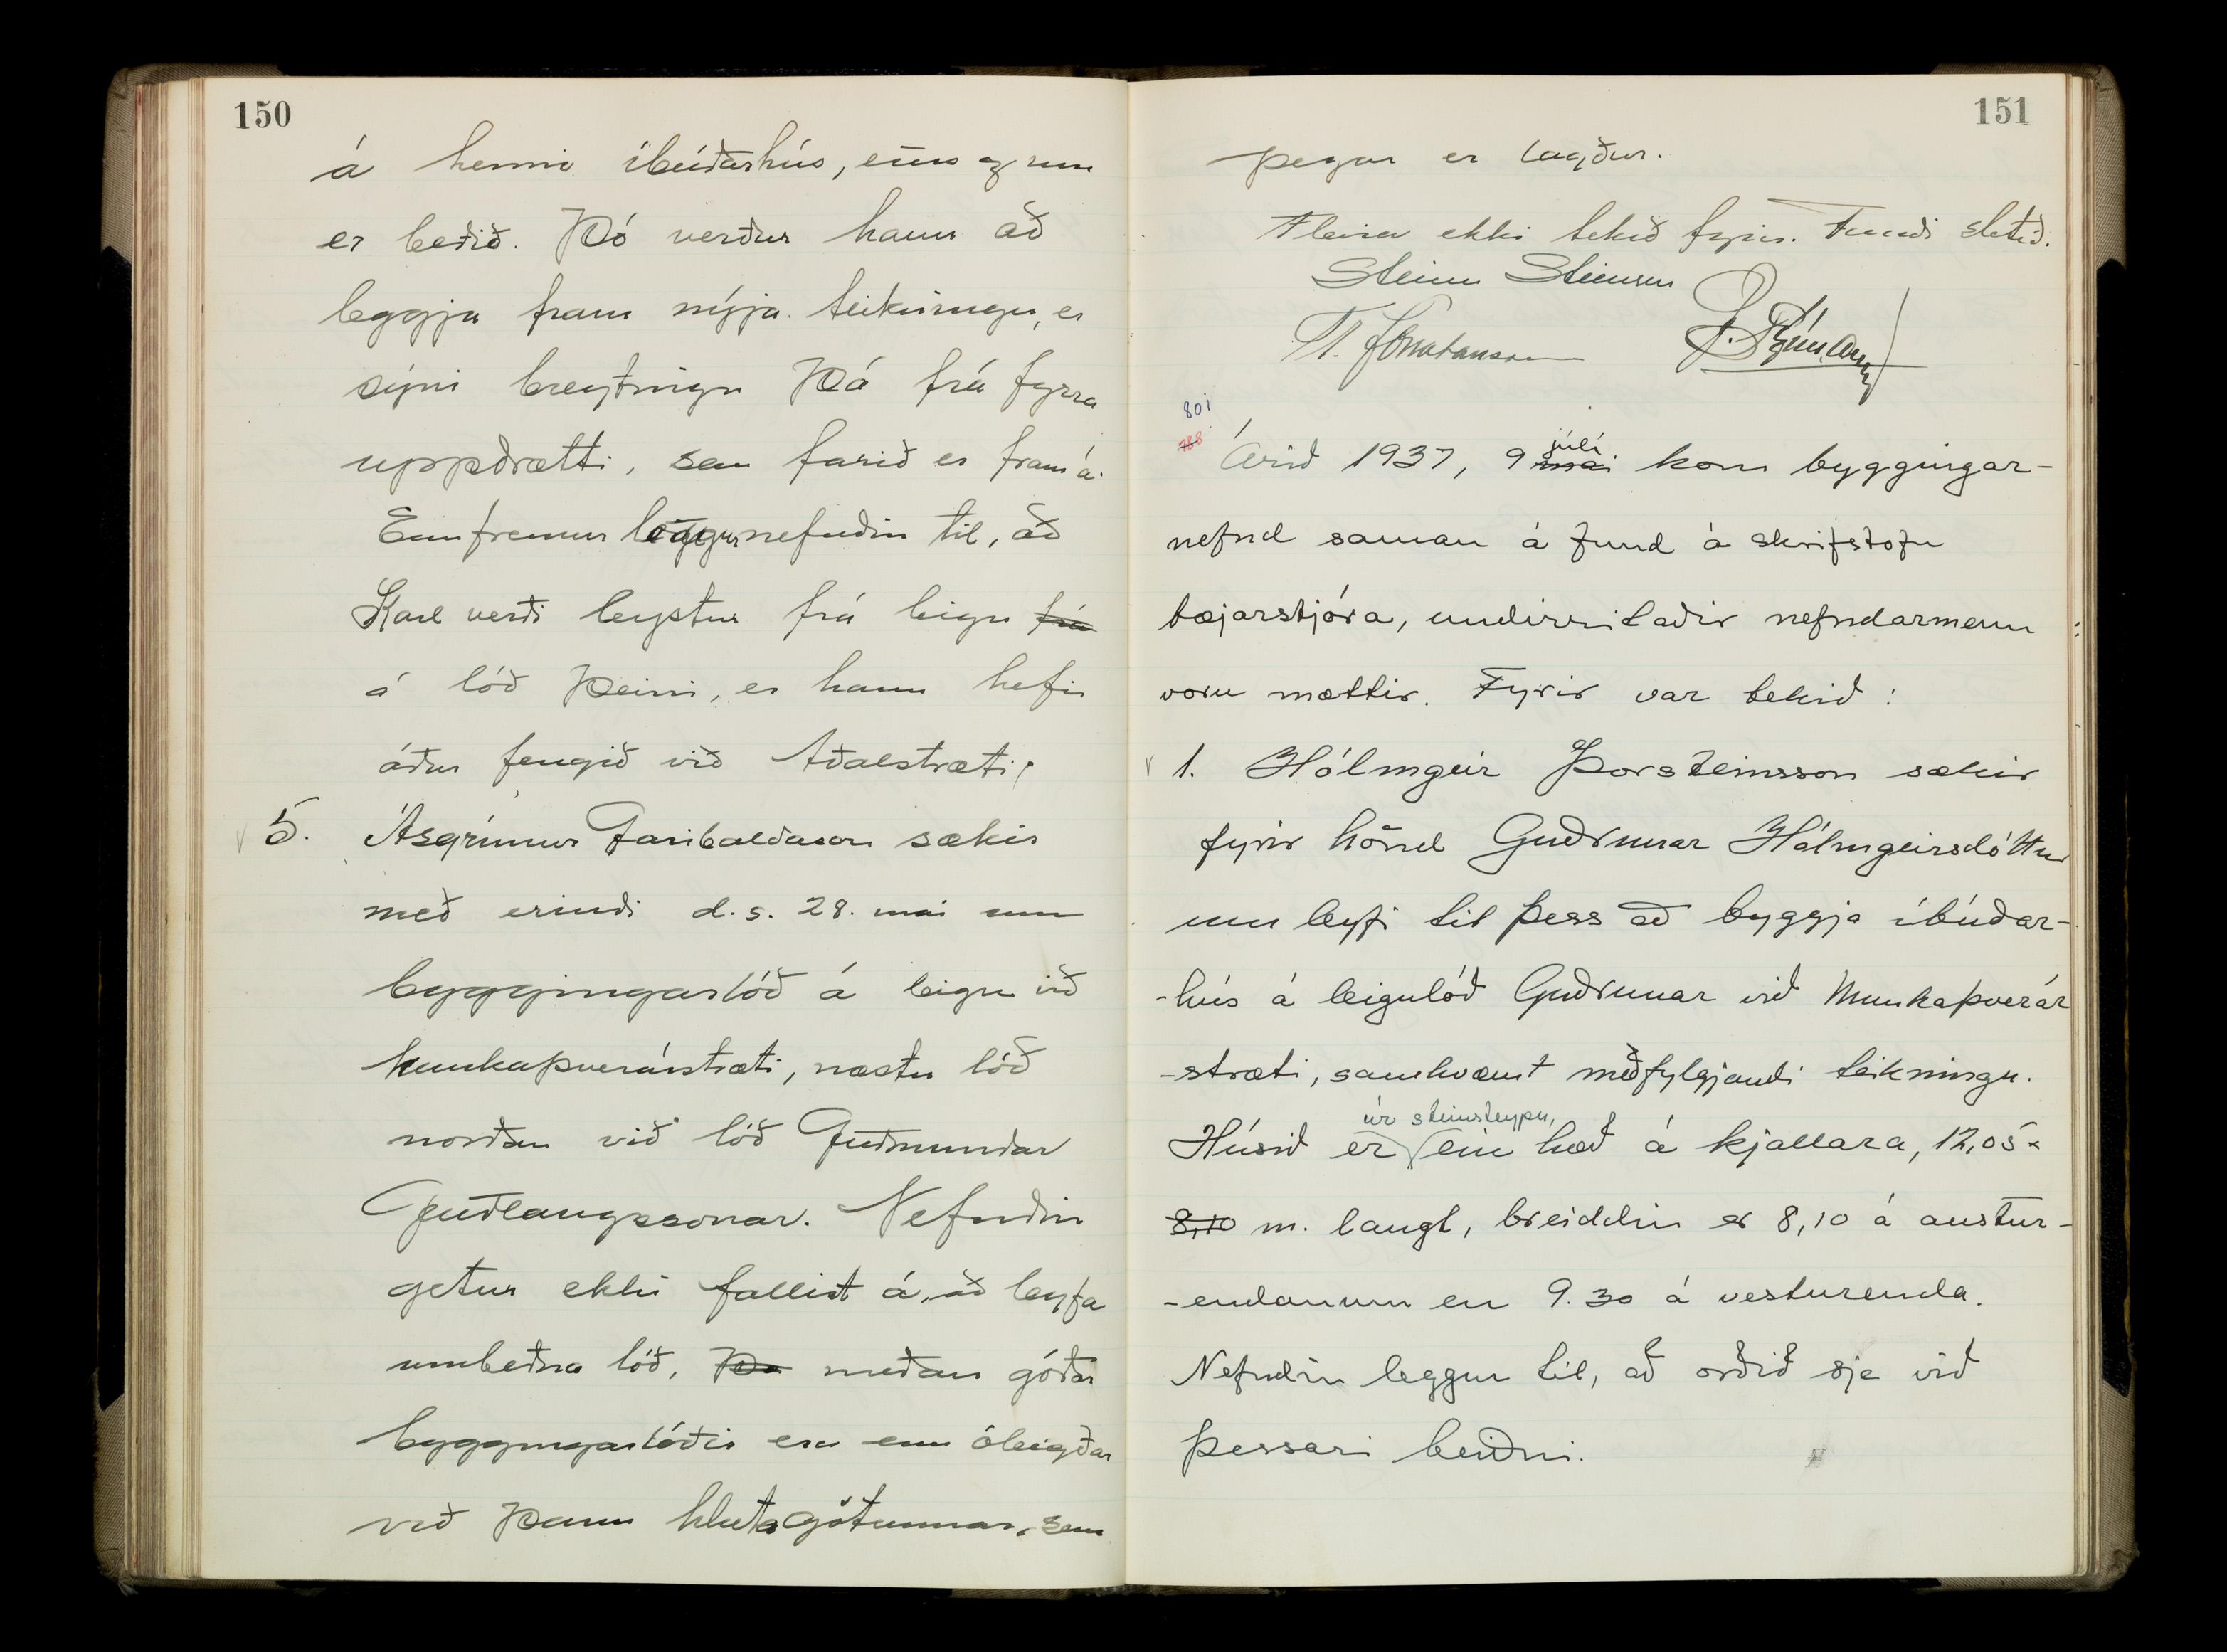 150
á henni íbúðarhús, eins og um
er beðið. Þó verður hann að
leggja fram nýja teikningu, er
sýni breytingu þá frá fyrra
uppdrætti, sem farið er fram á.
Ennfremur leggur nefndin til, að
Karl verði leystur frá leigu frá
á lóð þeirri, er hann hefir
áður fengið við Aðalstræti.
5. Ásgrímur Garibaldason sækir
með erindi d.s. 28. maí um
byggingarlóð á leigu við
Munkaþverárstræti, næstu lóð
norðan við lóð Guðmundar
Guðlaugssonar. Nefndin
getur ekki fallist á, að leyfa
umbeðna lóð, meðan góðar
byggingarlóðir eru enn óleigðar
við þann hluta götunnar, sem
151
þegar er lagður.
Fleira ekki tekið fyrir. Fundi slitið.
Steinn Steinsen
801
788
Árið 1937, 9 maí júlí kom byggingar-
nefnd saman á fund á skrifstofu
bæjarstjóra, undirritaðir nefndarmenn
voru mættir. Fyrir var tekið:
1. Hólmgeir Þorsteinsson sækir
fyrir hönd Guðrunar Hólmgeirsdóttur
um leyfi til þess að byggja íbúðar-
-hús á leigulóð Guðrunar við Munkaþverár
-stræti, samkvæmt meðfylgjandi teikningu.
úr steinsteypu,
Húsið er ein hæð á kjallara, 12,05 x
8,10 m. langt, breiddin er 8,10 á austur-
-endanum en 9.30 á vesturenda.
Nefndin leggur til, að orðið sje við
þessari beiðni.